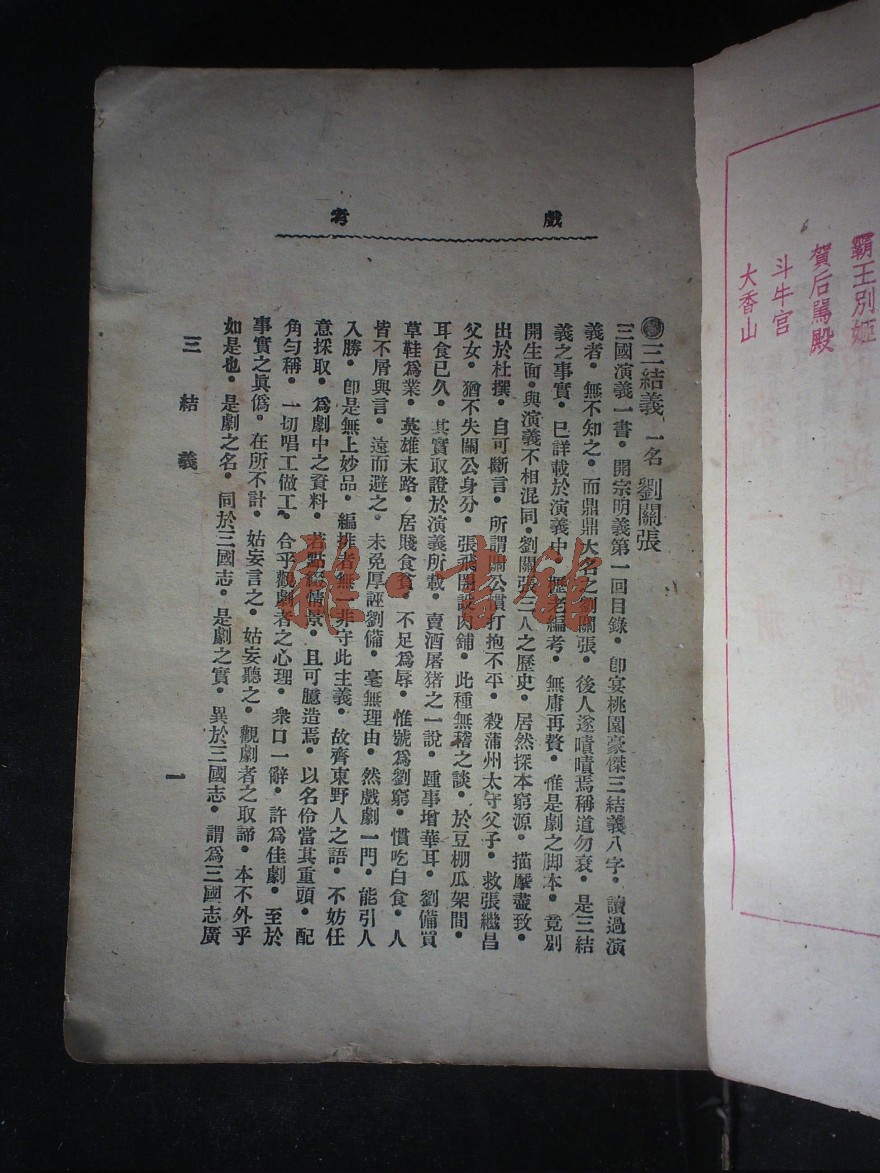 霸王別姬
賀后罵殿
斗牛宮
大香山
戲考
三結義 一名 劉關張
三國演義一書•開宗明義第一回目錄•卽宴桃園豪傑三結義八字•讀過演
義者•無不知之•而鼎鼎大名之劉關張•後人遂嘖嘖焉稱道勿衰•是三結
義之事實•已詳載於演義中•歷考編考•無庸再贅•惟是劇之脚本•竟別
開生面•與演義不相混同•劉關張三人之歷史•居然探本窮源•描摩盡致•
出於杜撰•自可斷言•所謂關公慣打抱不平•殺蒲州太守父子•救張繼昌
父女•猶不失關公身分•張飛開設肉鋪•此種無稽之談•於豆棚瓜架間•
耳食已久•其實取證於演義所載•賣酒屠猪之一說•踵事增華耳•劉備買
草鞋爲業•英雄末路•居賤食貧•不足爲辱•惟號爲劉窮•慣吃白食•人
皆不屑與言•遠而避之•未免厚誣劉備•毫無理由•然戲劇一門•能引人
入勝•卽是無上妙品•編排者無一非守此主義•故齊東野人之語•不妨任
意採取•爲劇中之資料•若點綴情景•且可臆造焉•以名伶當其重頭•配
角勻稱•一切唱工做工•合乎觀劇者之心理•衆口一辭•許爲佳劇•至於
事實之眞僞•在所不計•姑妄言之•姑妄聽之•觀劇者之取諦•本不外乎
如是也•是劇之名•同於三國志•是劇之實•異於三國志•謂爲三國志廣
三結義
一
雜·書館